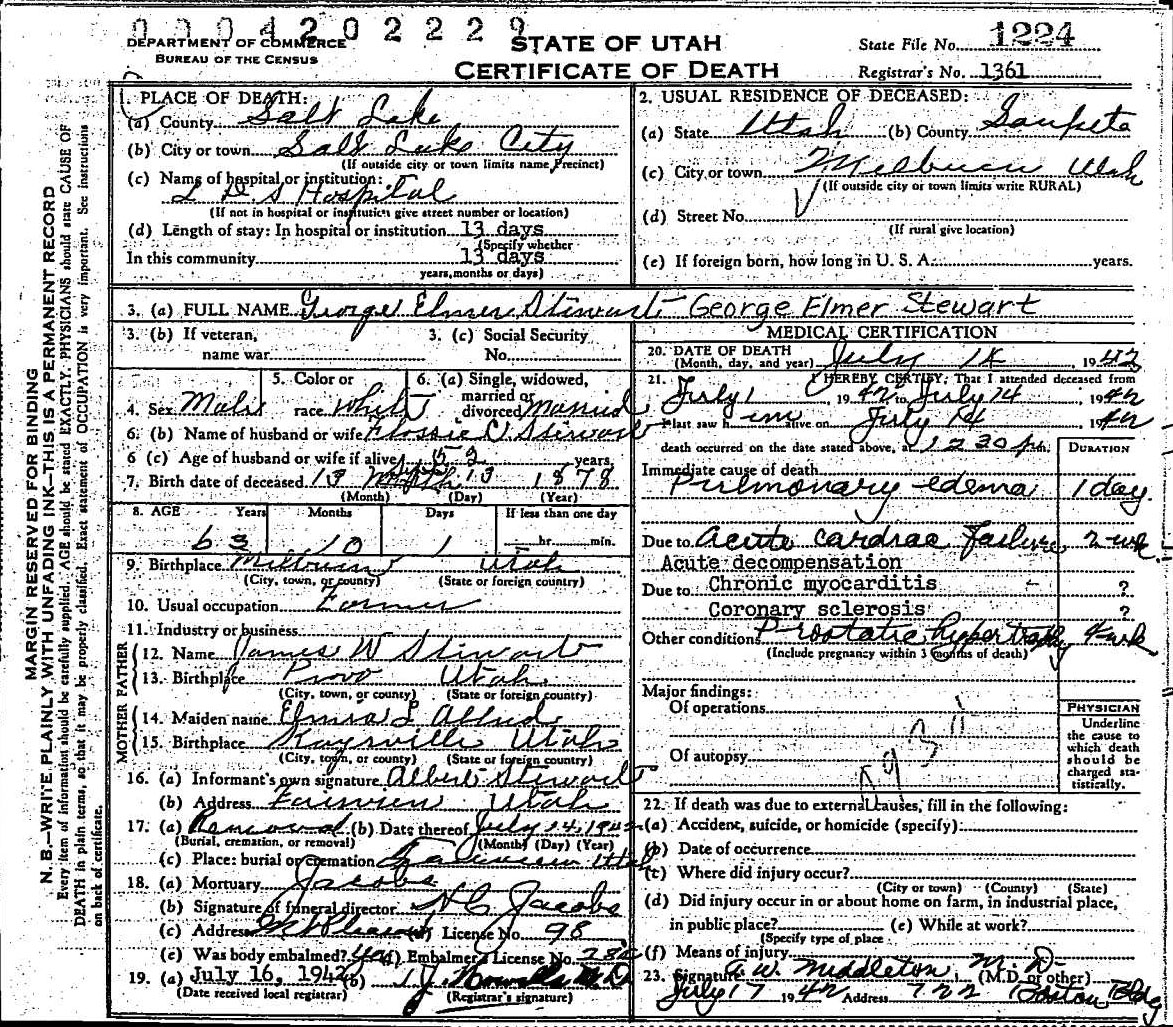 0004202229
DEPARTMENT OF COMMERCE
BUREAU OF THE CENSUS
STATE OF UTAH
CERTIFICATE OF DEATH
State File No. 1224
Registrar's No. 1361
MARGIN RESERVED FOR BINDING
N. B.—WRITE PLAINLY WITH UNFADING INK—THIS IS A PERMANENT RECORD
Every item of information should be carefully supplied. AGE should be stated EXACTLY. PHYSICIANS should state CAUSE OF
DEATH in plain terms, so that it may be properly classified. Exact statement of OCCUPATION is very important. See instructions
on back of certificate.
1. PLACE OF DEATH:
(a) County Salt Lake
(b) City or town Salt Lake City
(If outside city or town limits name Precinct)
(c) Name of hospital or institution:
L D S Hospital
(If not in hospital or institution give street number or location)
(d) Length of stay: In hospital or institution 13 days
(Specify whether
In this community 13 days
years, months or days)
2. USUAL RESIDENCE OF DECEASED:
(a) State Utah (b) County Sanpete
(c) City or town Milburn Utah
(If outside city or town limits write RURAL)
(d) Street No.
(If rural give location)
(e) If foreign born, how long in U. S. A. years.
3. (a) FULL NAME George Elmer Stewart George Elmer Stewart
3. (b) If veteran,
name war
3. (c) Social Security
No.
4. Sex Male
5. Color or
race White
6. (a) Single, widowed,
married or
divorced Married
6. (b) Name of husband or wife Flossie V Stewart
6 (c) Age of husband or wife if alive 52 years
7. Birth date of deceased 13 1878
(Month) (Day) (Year)
8. AGE Years Months Days If less than one day
63 10 1 hr. min.
9. Birthplace Milburn Utah
(City, town, or county) (State or foreign country)
10. Usual occupation Farmer
11. Industry or business
FATHER
12. Name James W Stewart
13. Birthplace Provo Utah
(City, town, or county) (State or foreign country)
MOTHER
14. Maiden name L Allred
15. Birthplace Kaysville Utah
(City, town, or county) (State or foreign country)
16. (a) Informant's own signature Albert Stewart
(b) Address Fairview Utah
17. (a) Removal (b) Date thereof July 14, 1942
(Burial, cremation, or removal) (Month) (Day) (Year)
(c) Place: burial or cremation Fairview Utah
18. (a) Mortuary Jacobs
(b) Signature of funeral director H C Jacobs
(c) Address Mt Pleasant (d) License No. 98
(e) Was body embalmed? Yes (f) Embalmer's License No.
19. (a) July 16, 1942 (b)
(Date received local registrar) (Registrar's signature)
MEDICAL CERTIFICATION
20. DATE OF DEATH
(Month, day, and year) July 14, 1942
21. I HEREBY CERTIFY: That I attended deceased from
July 1, 1942 to July 14, 1942
I last saw him alive on July 14 1942
death occurred on the date stated above, at 12 30 pm.
DURATION
Immediate cause of death
Pulmonary edema 1 day
Due to Acute cardiac failure 2 wk
Acute decompensation
Due to: Chronic myocarditis - ?
Coronary sclerosis ?
Other conditions Prostatic hypertrophy 4 wk
(Include pregnancy within 3 months of death)
Major findings:
Of operations
Of autopsy
PHYSICIAN
Underline
the cause to
which death
should be
charged sta-
tistically.
22. If death was due to external causes, fill in the following:
(a) Accident, suicide, or homicide (specify):
(b) Date of occurrence
(c) Where did injury occur?
(City or town) (County) (State)
(d) Did injury occur in or about home on farm, in industrial place,
in public place? (e) While at work?
(Specify type of place
(f) Means of injury
23. Signature A. W. Middleton M. D.
(M.D. or other)
July 17 1942 Address 722 Boston Bldg